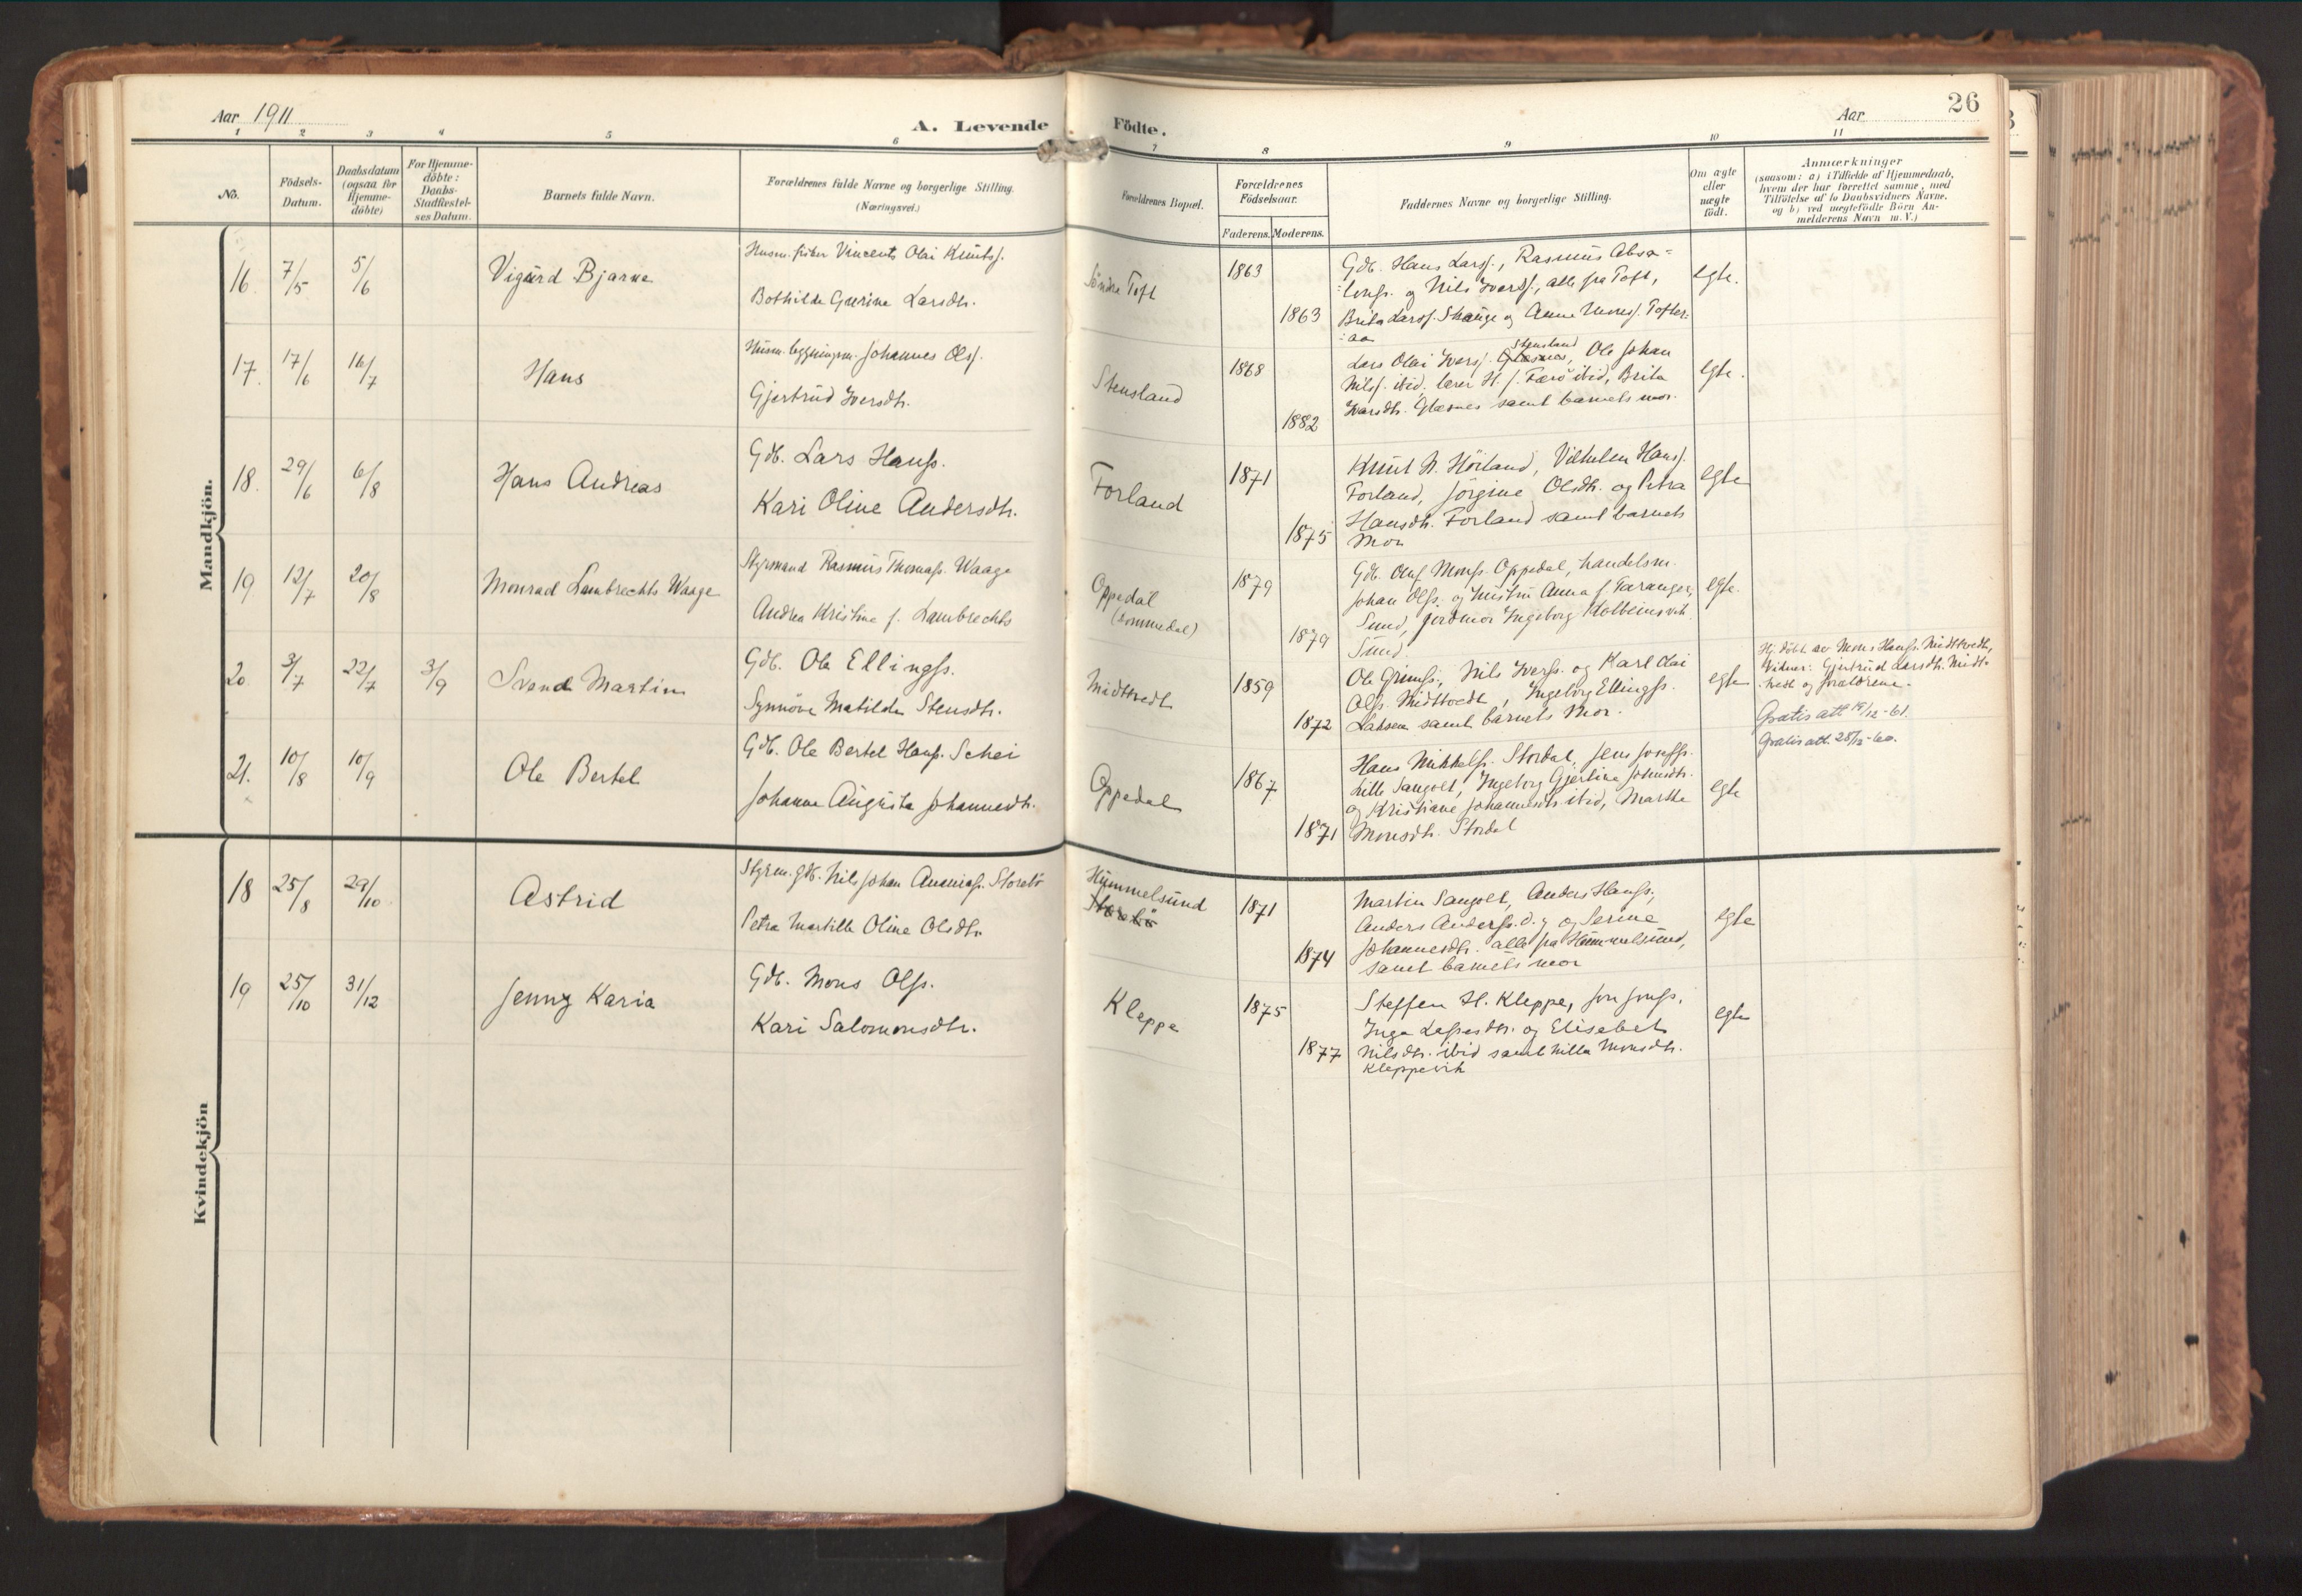 Aar 1911
A. Levende
Födte.
Aar
26
1 2 3 4 5 6 7 8 9 10 11
No.
Födsels-
Datum.
Daabsdatum
(ogsaa for
Hjemme-
döbte)
For Hjemme-
döbte:
Daabs-
Stadfæstel-
ses Datum.
Barnets fulde Navn.
Forældrenes fulde Navne og borgerlige Stilling.
(Næringsvei.)
Forældrenes Bopæl.
Forældrenes
Födselsaar.
Faderens. Moderens.
Faddernes Navne og borgerlige Stilling.
Om ægte
eller
uægte
födt.
Anmærkninger
(saasom: a) i Tilfælde af Hjemmedaab,
hvem der har forrettet samme, med
Tilföielse af to Daabsvidners Navne,
og b) ved uægtefödte Börn An-
melderens Navn m. V.)
Mandkjön.
16. 7/5 5/6 Vigurd Bjarne
Husm. fisker Vincents Olai Knuts.
Bothilde Gurine Larsdtr.
Söndre Toft
1863
1863
Gdb. Hans Larss., Rasmus Absa=
lons. og Nils Iverss., alle fra Toft,
Brita Larss. Skauge og Anne Monss. Tofter:
:aa
egte.
17. 17/6 16/7 Hans
Husm. bygningsm. Johannes Ols.
Gjertrud Iversdtr.
Stensland
1868
1882
Stensland
Lars Olai Ivers. Glæsnes, Ole Johan
Nils. ibid. lærer H. J. Færö ibid, Brita
Ivarsdtr. Glæsnes samt barnets mor.
egte.
18. 29/6 6/8 Hans Andreas
Gdb. Lars Hanss.
Kari Oline Andersdtr.
Forland
1871
1875
Knut N. Höiland, Vilhelm Hans.
Forland, Jörgine Olsdtr. og Petra
Hansdtr. Forland samt barnets
Mor
egte
19 12/7 20/8 Monrad Lambrechts Waage
Styrmand Rasmus Thomass. Waage
Andrea Kristine f. Lambrechts
Oppedal
(Tommedal)
1879
1879
Gdb. Oluf Monss. Oppedal, handelsm.
Johan Olss. og hustru Anna f. Taranger,
Sund, jordmor Ingeborg Kolbeinsvik
Sund.
egte.
20. 3/7 22/7 3/9 Svend Martin
Gdb. Ole Ellingss.
Synnöve Matilde Stensdtr.
Midttvedt
1859
1872
Ole Grimss., Nils Iverss. og Karl Olai
Olss. Midttvedt, Ingeborg Ellingss.
Laksen samt barnets Mor.
egte
Hj. döbt av Mons Hanss. Midttvedt,
Vidner: Gjertrud Larsdtr. Midt-
tvedt og forældrene.
Gratis att 19/12-61.
Gratis att. 28/12-60.
21. 10/8 10/9 Ole Bertel
Gdb. Ole Bertel Hanss. Schei
Johanne Augusta Johannesdtr.
Oppedal
1867
1871
Hans Mikkelss. Stordal, Jens Josefss.
Lille Sangolt, Ingeborg Gjertine Johnsdtr.
og Kristiane Johannesdtr ibid, Marthe
Monsdtr. Stordal
egte
Kvindekjön
18 25/8 29/10 Astrid
Styrm. gdb. Nils Johan Ananiass. Storebö
Petra Martille Oline Olsdtr.
Hummelsund
Storebö
1871
1874
Martin Sangolt, Anders Hanss.,
Anders Anderss. d.y. og Serine
Johannesdtr. alle fra Hummelsund,
samt barnets mor
egte
19 25/10 31/12 Jenny Karia
Gdb. Mons Olss.
Kari Salomonsdtr.
Kleppe
1875
1877
Steffen H. Kleppe, Jon Jonss.
Inga Lassesdtr. og Elisabet
Nilsdtr. ibid samt Milla Monsdtr.
Kleppevik
egte